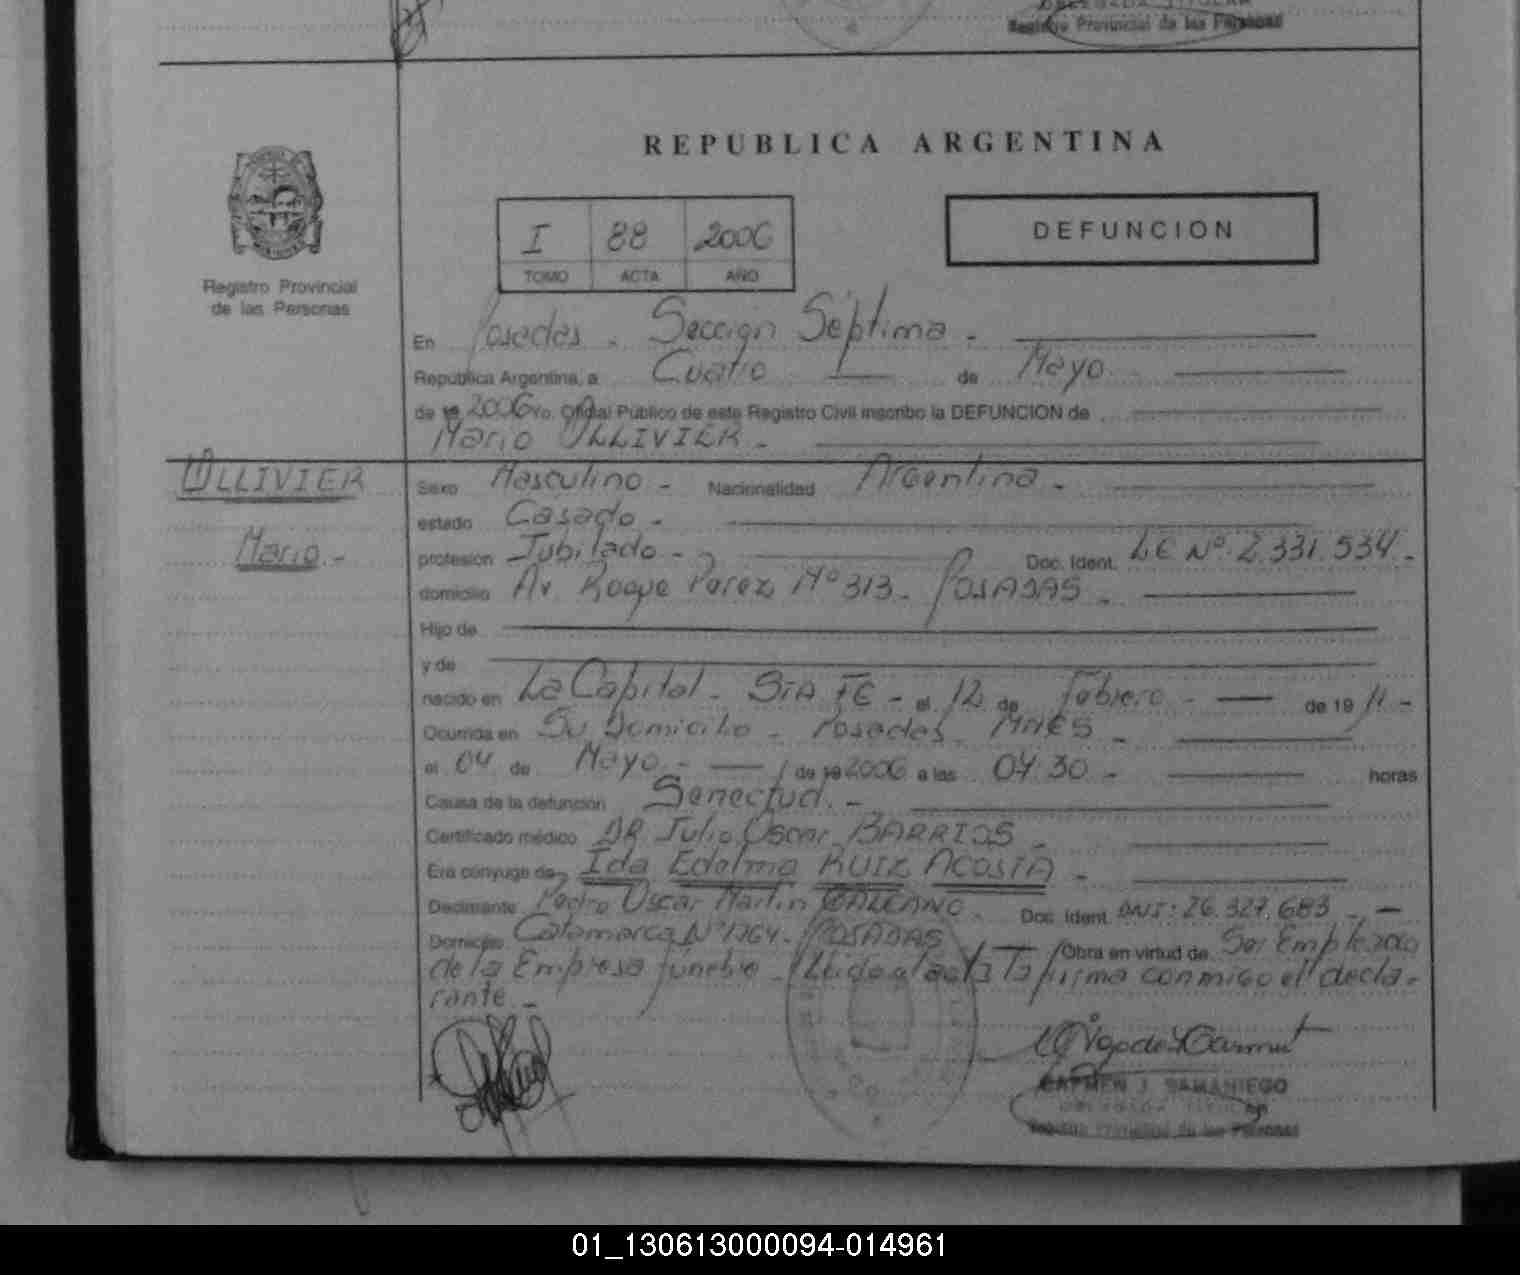 Registro Provincial de las Personas
REPUBLICA ARGENTINA
I 88 2006
TOMO ACTA AÑO
DEFUNCION
Registro Provincial
de las Personas
En Posadas - Sección Séptima -
República Argentina, a Cuatro de Mayo
de 19 2006 Yo. Oficial Público de este Registro Civil inscribo la DEFUNCION de
Mario OLLIVIER -
OLLIVIER
Mario -
Sexo Masculino - Nacionalidad Argentina -
estado Casado -
profesión Jubilado - Doc. Ident. LE Nº 2.331.534 -
domicilio Av. Roque Perez Nº 313 - POSADAS -
Hijo de
y de
nacido en La Capital - STA FE - el 12 de Febrero - de 19 11 -
Ocurrida en Su Domicilio - Posadas - MNES -
el 04 de Mayo - de 19 2006 a las 04:30 - horas
Causa de la defunción Senectud. -
Certificado médico DR Julio Oscar BARRIOS -
Era cónyuge de Ida Edelma RUIZ ACOSTA -
Declarante Pedro Oscar Martin GALEANO - Doc. Ident. DNI: 26.327.683 -
Domicilio Catamarca Nº 1764 - POSADAS Obra en virtud de Ser Empleado
de la Empresa fúnebre - Leida el acta la firma conmigo el decla-
rante -
CARMEN J. SAMANIEGO
Registro Provincial de las Personas
01_130613000094-014961